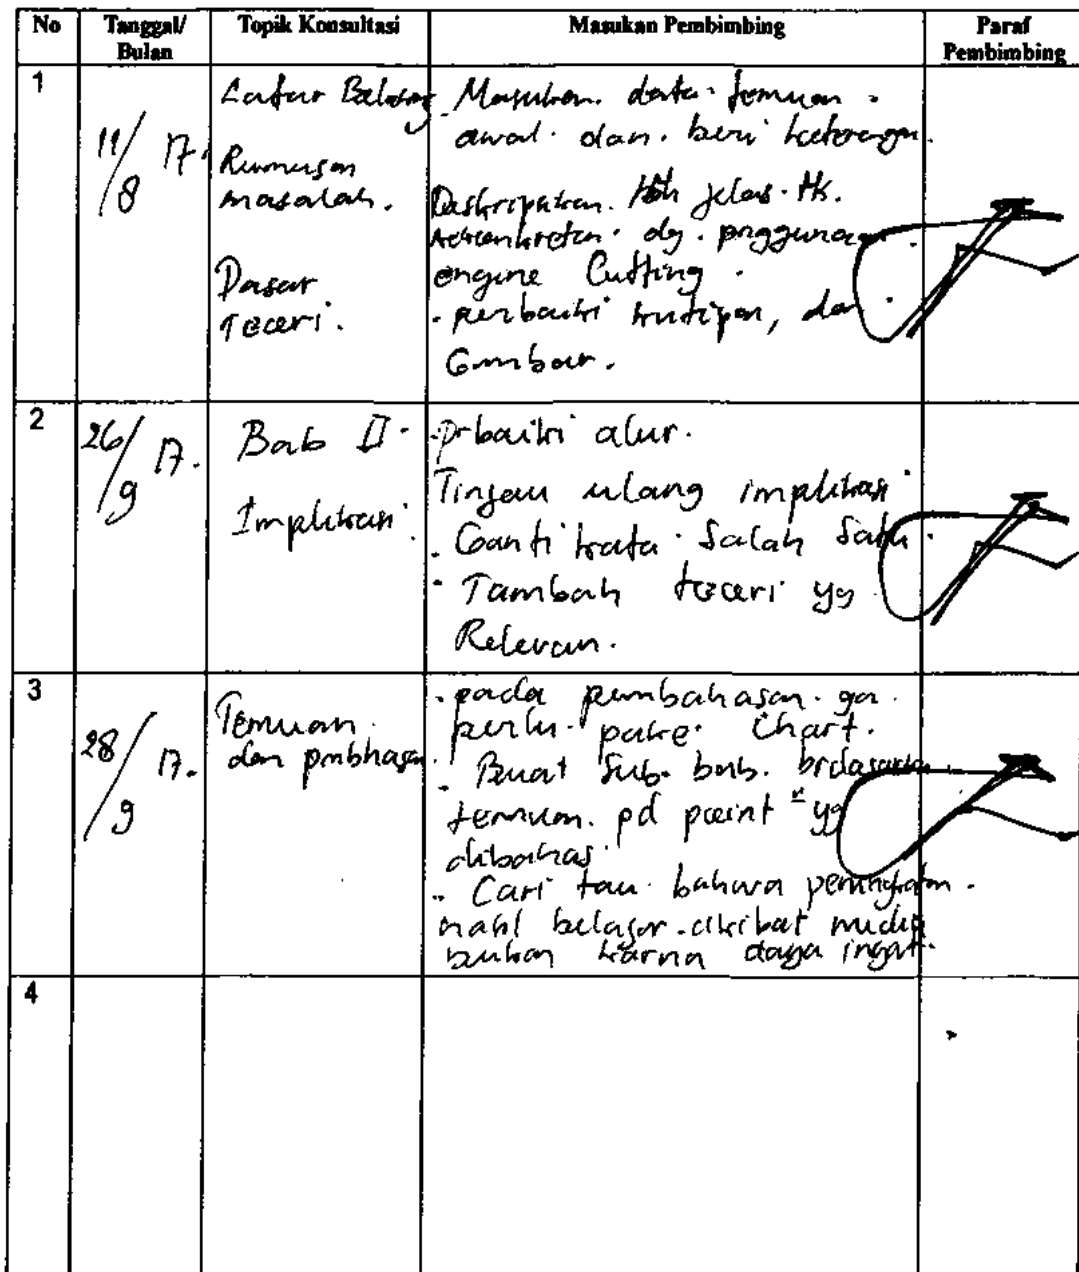 No Tanggal/ Bulan Topik Konsultasi Masukan Pembimbing Paraf Pembimbing
1
11/8 17.
Latar Belakang
Rumusan
masalah.
Dasar
Teori.
Masukan data temuan
awal dan beri keterangan.
Deskripsikan jelas
dg. penggunaan
engine Cutting.
- perbaiki kutipan, dan
Gambar.
2
26/9 17.
Bab II
Implikasi
- prbaiki alur.
Tinjau ulang implikasi
- Ganti kata Salah Satu.
- Tambah teori yg
Relevan.
3
28/9 17.
Temuan
dan pmbhasan.
- pada pembahasan ga
perlu pake Chart.
- Buat Sub. bab. brdasarkan
temuan pd point" yg
dibahas
- Cari tau bahwa peningkatan
hasil belajar akibat media
bukan karna daya ingat.
4